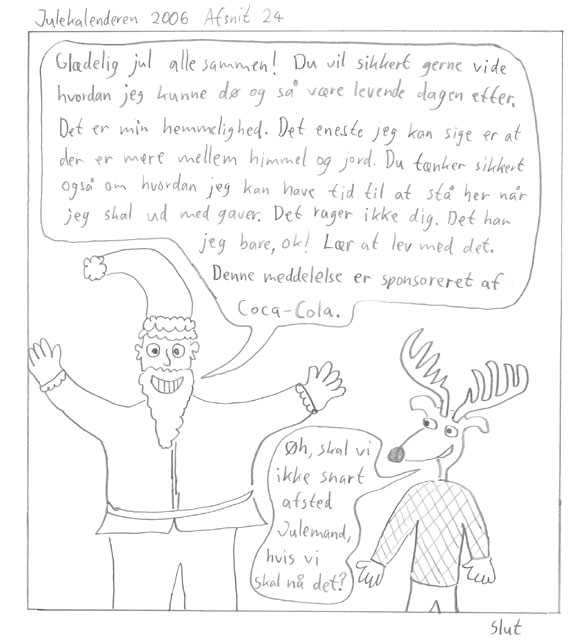 Julekalenderen 2006 Afsnit 24
Glædelig jul alle sammen! Du vil sikkert gerne vide
hvordan jeg kunne dø og så være levende dagen efter.
Det er min hemmelighed. Det eneste jeg kan sige er at
der er mere mellem himmel og jord. Du tænker sikkert
også om hvordan jeg kan have tid til at stå her når
jeg skal ud med gaver. Det rager ikke dig. Det har
jeg bare, ok! Lær at lev med det.
Denne meddelelse er sponsoreret af
Coca-Cola.
Øh, skal vi
ikke snart
afsted
Julemand,
hvis vi
skal nå det?
Slut